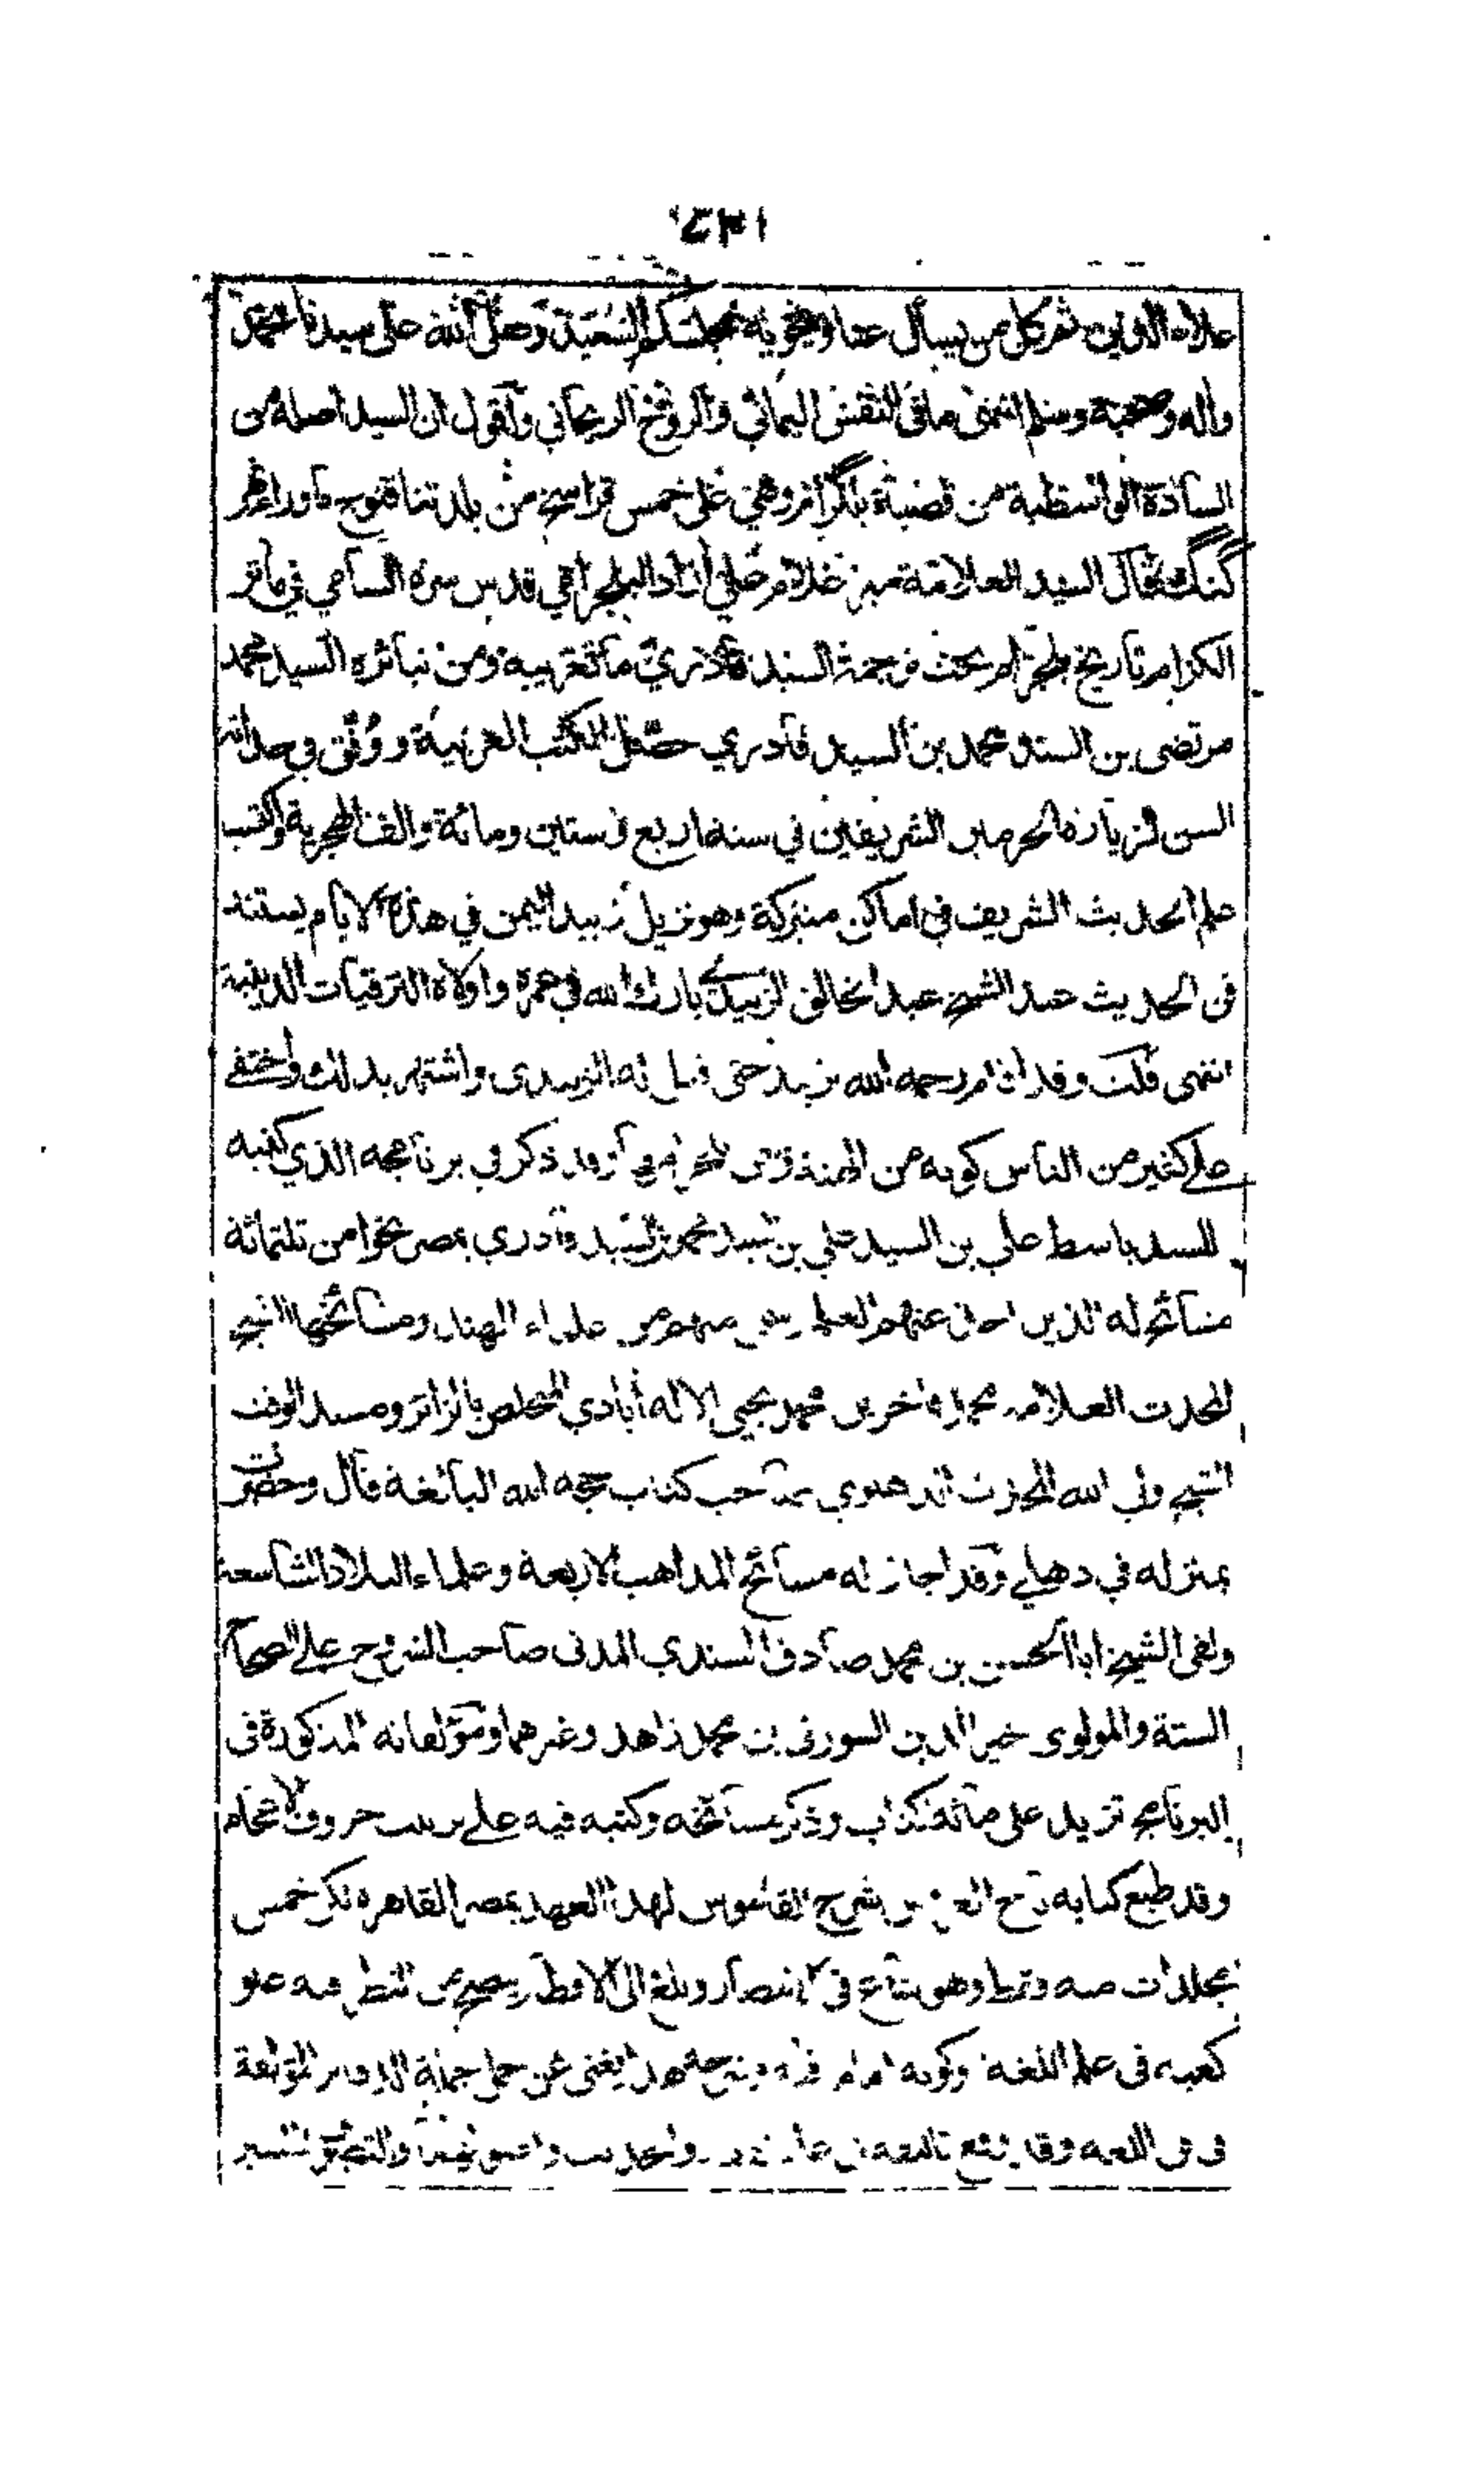 علاء الدين ثم كل من يسأل عنا ويحويه مجلسكم السعيد وصلى الله على سيدنا محمد
واله وصحبه وسلم انتهى ما فى النفس اليماني والروح الريحاني واقول ان السيد اصله من
السادة الواسطية من قصبة بلگرام وهي على خمس فراسخ من بلدتنا قنوج ماوراء نهر
گنگ قال السيد العلامة مير غلام علي آزاد البلجرامي قدس سره السامي في مآثر
الكرام تاريخ بلجرام بحث ترجمة السيد قادري ما تعريبه ومن نبائره السيد محمد
مرتضى بن السيد محمد بن السيد قادري حصل الكتب العربية ووفق في حداثة
السن لزيارة الحرمين الشريفين في سنة اربع وستين ومائة والف الهجرية واكتسب
علم الحديث الشريف في اماكن متبركة وهو نزيل زبيد اليمن في هذه الايام يستند
فن الحديث عند الشيخ عبد الخالق الزبيدي بارك الله في عمره واولاه الترقيات الدينية
انتهى قلت وقد اقام رحمه الله بزبيد حتى قيل له الزبيدي واشتهر بذلك واختفى
على كثير من الناس كونه من الهند ومن بلجرام وقد ذكر في برنامجه الذي كتبه
للسيد باسط علي بن السيد علي بن السيد محمد بن السيد قادري بمصر نحوا من ثلثمائة
مشائخ له الذين اخذ عنهم العلم منهم من علماء الهند ومشائخها الشيخ
المحدث العلامة محمد فاخر بن محمد يحيى الاله أبادي المتخلص بالزائر ومسند الوقت
الشيخ ولي الله المحدث الدهلوي صاحب كتاب حجة الله البالغة قال وحضرت
بمنزله في دهلي وقد اجاز له مشائخ المذاهب الاربعة وعلماء البلاد الشاسعة
ولقى الشيخ ابا الحسن بن محمد صادق السندي المدنى صاحب الشروح على الصحاح
الستة والمولوى خير الدين السورتى بن محمد زاهد وغيرهما ومؤلفاته المذكورة فى
البرنامج تزيد على مائة كتاب وذكر مشائخه وكتبه فيه على ترتيب حروف الاعجام
وقد طبع كتابه تاج العروس شرح القاموس لهذا العهد بمصر القاهرة لكن خمس
مجلدات منه فقط وهو شاع فى الامصار وبلغ الى الاقطار يتضح من النظر فيه علو
كعبه فى علم اللغة وكونه امام فنه وشرحه هذا يغنى عن حمل جملة الدفاتر المؤلفة
فى فن اللغة وقد